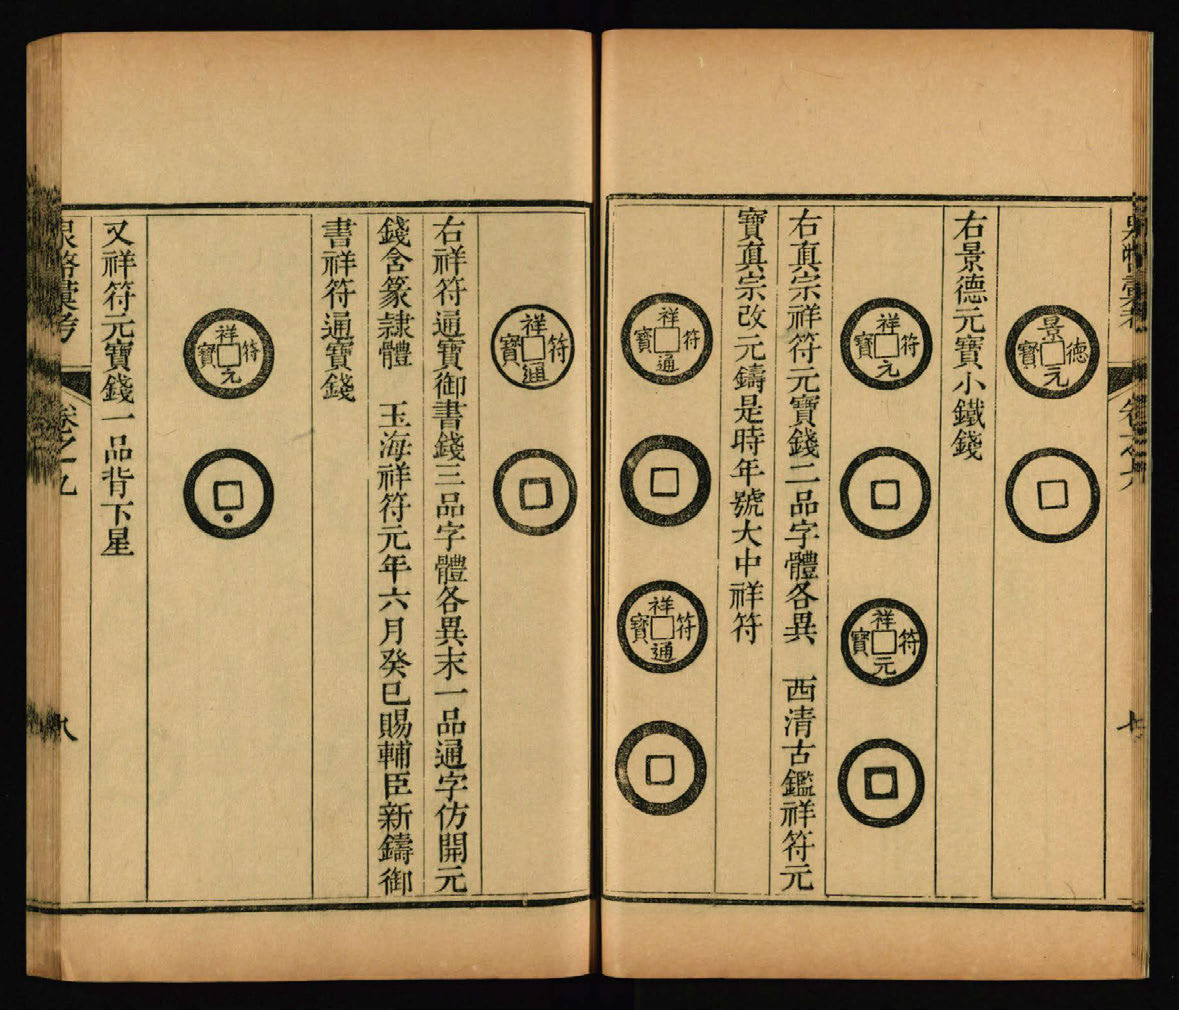 景德元寶
右景德元寶小鐵錢
祥符元寶
祥符元寶
右真宗祥符元寶錢二品字體各異 西清古鑑祥符元
寶真宗改元鑄是時年號大中祥符
祥符通寶
祥符通寶
七
祥符通寶
右祥符通寶御書錢三品字體各異末一品通字仿開元
錢含篆隷體 玉海祥符元年六月癸巳賜輔臣新鑄御
書祥符通寶錢
祥符元寶
又祥符元寶錢一品背下星
泉幣彙考
卷之九
八